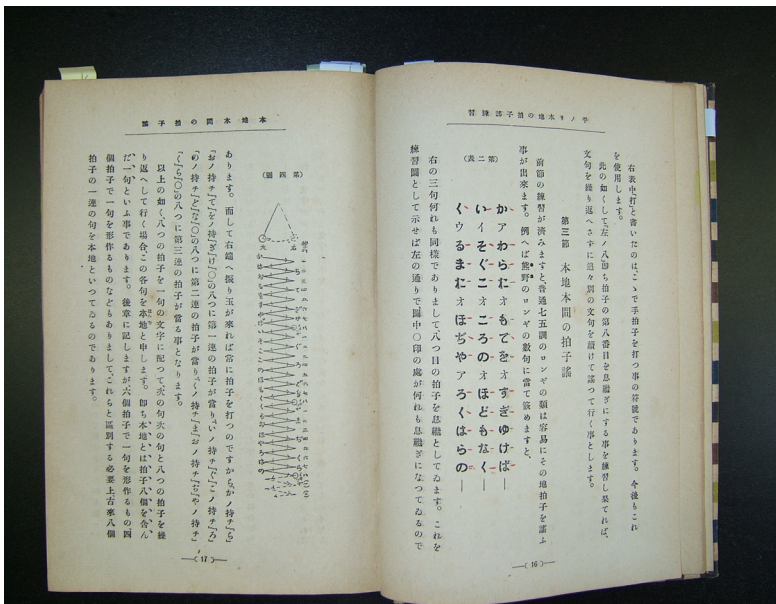 平ノリ本地の拍子謡練習
右表中「打」と書いたのは、こゝで手拍子を打つ事の符號であります。今後もこれ
を使用します。
此の如くして「左ノ八」即ち拍子の第八番目を息繼ぎにする事を練習し果てれば、
文句を繰り返へさずに追々別の文句を續けて謡つて行く事とします。
第三節　本地本間の拍子謡
前節の練習が済みますと、普通七五調のロンギの類は容易にその地拍子を謡ふ
事が出來ます。例へば熊野のロンギの數句に當て嵌めますと、
(第二表)
かァわらにォもでをォすぎゆけば―
いィそぐこォころのォほどもなく―
くゥるまにォほぢやァろくはらの―
右の三句何れも同樣でありまして、八つ目の拍子を息繼としてゐます。これを
練習圖として示せば左の通りで圖中〇印の處が何れも息繼ぎになつてゐるので
(16)
本地本間の拍子謡
(第四圖)
左
右
あります。而して右端へ振り玉が來れば常に拍子を打つのですから、「か」ノ持チ「ら」
「お」ノ持チ「て」「を」ノ持チ「ぎ」「け」「〇」の八つに第一連の拍子が當り、「い」ノ持チ「ぐ」「こ」ノ持チ「ろ」
「の」ノ持チ「ど」「な」「〇」の八つに第二連の拍子が當り、「く」ノ持チ「ま」「お」ノ持チ「ぢ」「や」ノ持チ
「く」「ら」「〇」の八つに第三連の拍子が當る事となります。
以上の如く、八つの拍子を一句の文字に配つて次の句次の句と八つの拍子を繰
り返へして行く場合、この各句を本地と申します。即ち本地とは拍子八個を含ん
だ一句といふ事であります。後章に記しますが六個拍子で一句を形作るもの四
個拍子で一句を形作るものなどもありまして、これらと區別する必要上古來八個
拍子の一連の句を本地といつてゐるのであります。
(17)